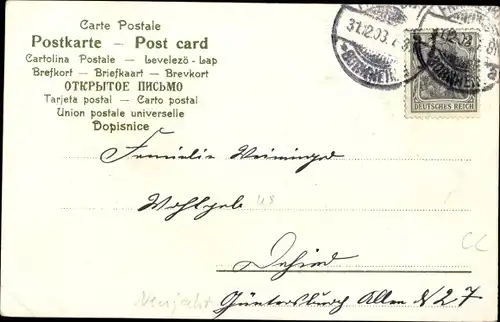 Carte Postale
Postkarte – Post card
Cartolina Postale — Levelező-Lap
Brefkort — Briefkaart — Brevkort
ОТКРЫТОЕ ПИСЬМО
Tarjeta postal — Carto postal
Union postale universelle
Dopisnice
31.12.03.
DEUTSCHES REICH
Familie
Wohlgeb
Neujahr
Güntersburg Allee N 27